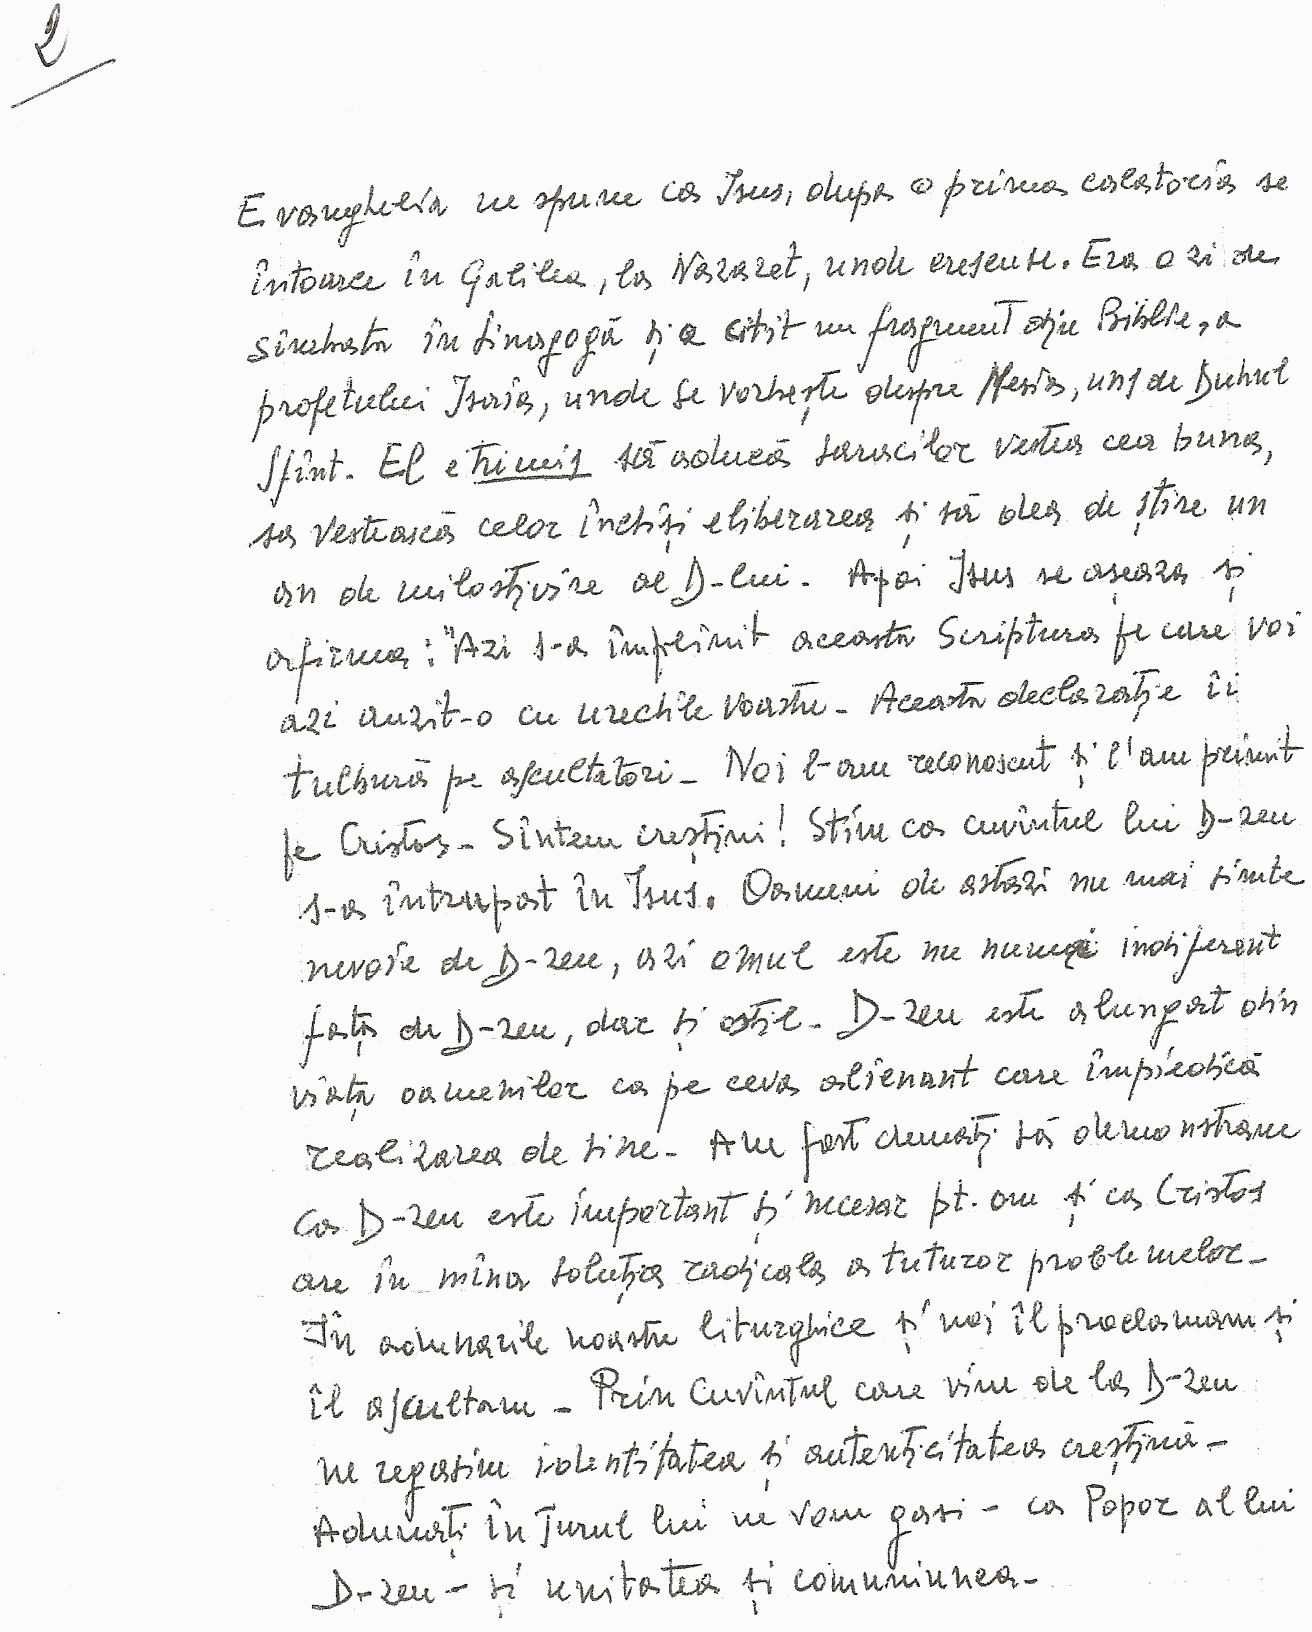 2
Evanghelia ne spune ca Isus, dupa o prima calatoria se
întoarce în Galilea, la Nazaret, unde crescuse. Era o zi de
sîmbata în sinagogă și a citit un fragment din Biblie, a
profetului Isaia, unde se vorbește despre Mesia, uns de Duhul
Sfînt. El e trimis să aducă saracilor vestea cea buna,
sa vestească celor închiși eliberarea și să dea de știre un
an de milostivire al D-lui. Apoi Isus se așeaza și
afirma: "Azi s-a împlinit aceasta Scriptura pe care voi
azi auzit-o cu urechile voastre - Aceasta declarație îi
tulbură pe ascultatori - Noi l-am recunoscut și l'am primit
pe Cristos - Sîntem creștini! Stim ca cuvîntul lui D-zeu
s-a întrupat în Isus. Oameni de astazi nu mai simte
nevoie de D-zeu, azi omul este nu numai indiferent
fața de D-zeu, dar și ostil - D-zeu este alungat din
viața oamenilor ca pe ceva alienant care împiedică
realizarea de sine - Am fost chemați să demonstram
ca D-zeu este important și necesar pt. om și ca Cristos
are în mîna soluția radicala a tuturor problemelor -
În adunarile noastre liturghice și noi îl proclamam și
îl ascultam - Prin Cuvîntul care vine de la D-zeu
ne regasim identitatea și autenticitatea creștină -
Adunați în Jurul lui ne vom gasi - ca Popor al lui
D-zeu - și unitatea și comuniunea -